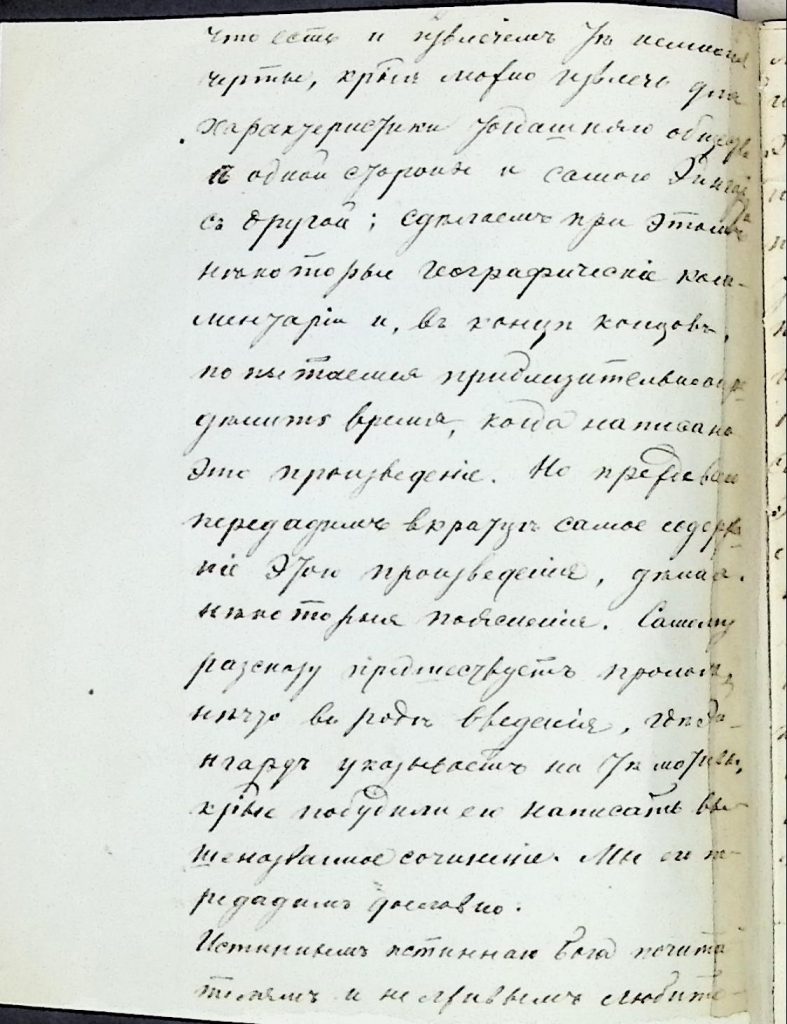 что есть и извлечемъ тѣ немногія
черты, крыя можно извлечь для
характеристики тогдашняго общества
съ одной стороны и самого Эйнгар
съ другой; сдѣлаемъ при этомъ
нѣкоторые географическіе ком-
ментаріи и, въ концѣ концовъ,
попытаемся приблизительно опре-
дѣлить время, когда написано
это произведеніе. Но прежде всего
передадимъ вкратцѣ самое содержа-
ніе этого произведенія, дѣлая
нѣкоторыя поясненія. Самому
разсказу предшествуетъ прологъ,
нѣчто въ родѣ введенія, гдѣ Эй-
нгардъ указываетъ на тѣ мотивы,
крые побудили его написать вы-
шеназванное сочиненіе. Мы его пе-
редадимъ дословно.
Истиннымъ истиннаго Бога почита-
телямъ и нелживымъ любите-